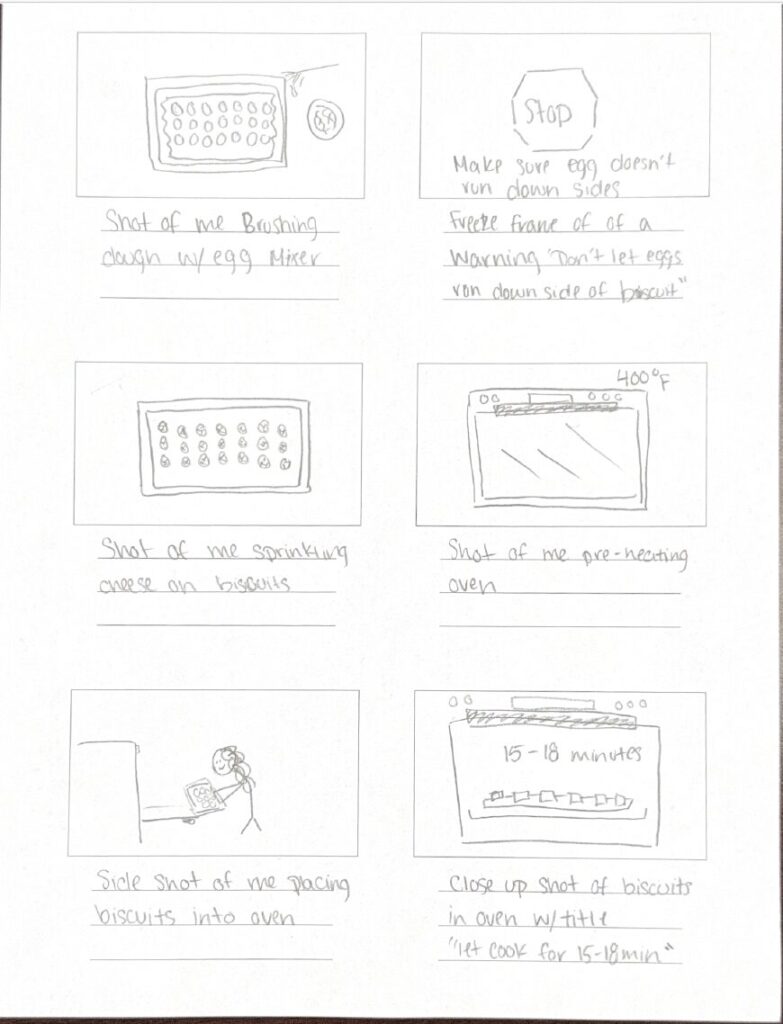 Shot of me Brushing
dough w/ egg Mixer
Stop
Make sure egg doesn't
run down sides
Freeze frame of of a
Warning "Don't let eggs
run down side of biscuit"
Shot of me sprinkling
cheese on biscuits
400°F
Shot of me pre-heating
oven
Side shot of me placing
biscuits into oven
15-18 minutes
Close up shot of biscuits
in oven w/ title
"let cook for 15-18 min"